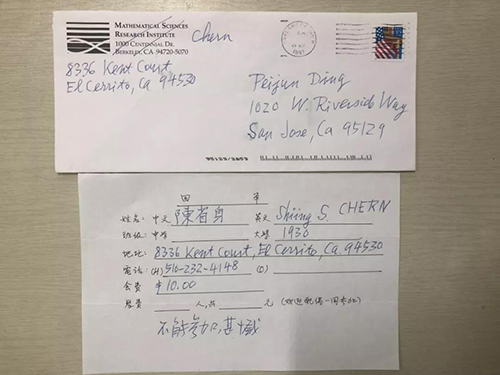 MATHEMATICAL SCIENCES
RESEARCH INSTITUTE
1000 CENTENNIAL DR.
BERKELEY, CA 94720-5070
Chern
8336 Kent Court
El Cerrito, Ca 94530
1997
Peijun Ding
1020 W. Riverside Way
San Jose, Ca 95129
回 单
姓名: 中文 陳省身 英文 Shiing S. CHERN
班级: 中学 大学 1930
地址: 8336 Kent Court, El Cerrito, Ca 94530
电话: (H) 510-232-4148 (O)
会费 $10.00
餐费 人, 共 元 (欢迎配偶一同参加)
不能參加, 甚憾